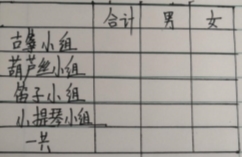 合计 男 女
古筝小组
葫芦丝小组
笛子小组
小提琴小组
一共